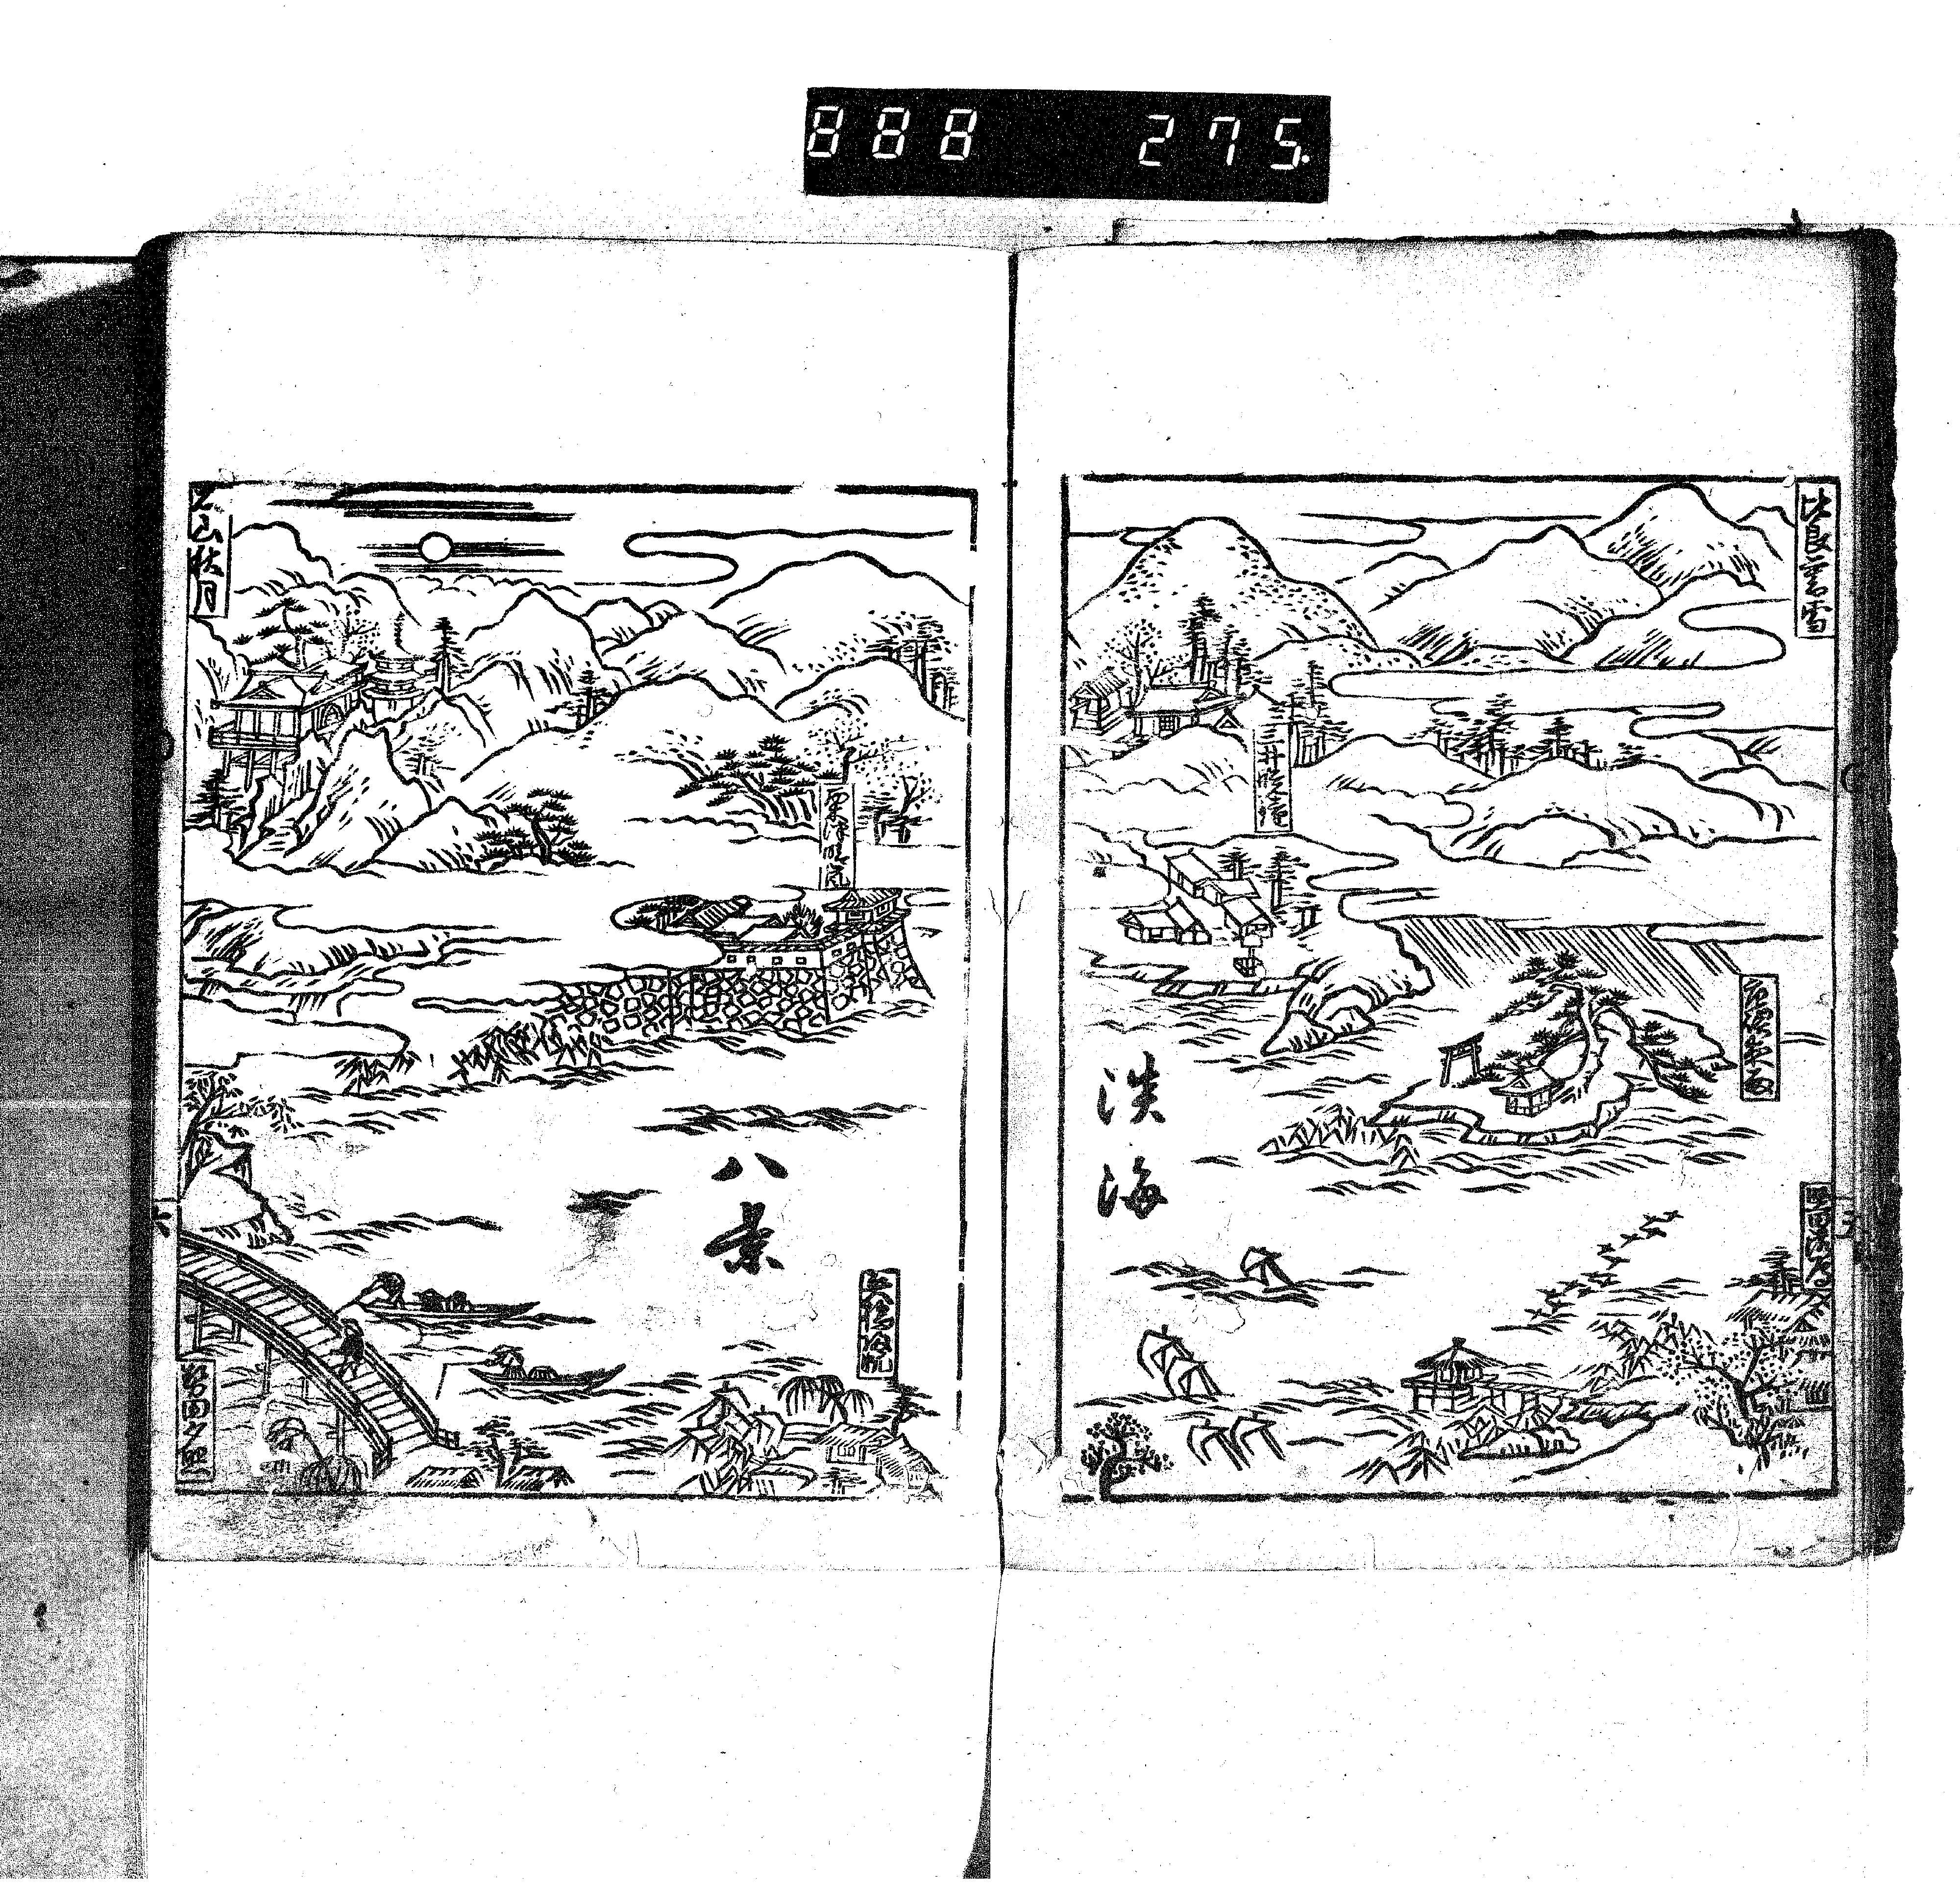 888 275
比良暮雪
三井晩鐘
唐崎夜雨
堅田落雁
淡海
八景
石山秋月
粟津晴嵐
矢橋帰帆
勢田夕照